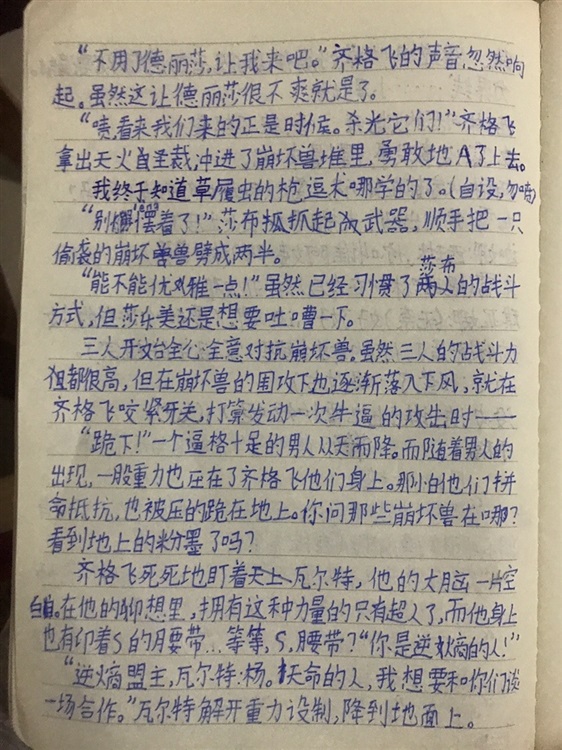 “不用了德丽莎，让我来吧。”齐格飞的声音忽然响
起。虽然这让德丽莎很不爽就是了。
“啧，看来我们来的正是时候。杀光它们！”齐格飞
拿出天火圣裁，冲进了崩坏兽堆里，勇敢地A了上去。
我终于知道草履虫的枪逗术哪学的了。（自设，勿喷）
“别 着了！”莎布狐抓起 武器，顺手把一只
偷袭的崩坏兽兽劈成两半。
“能不能优雅一点！”虽然已经习惯了莎布两人的战斗
方式，但莎乐美还是想要吐嘈一下。
三人开始全心全意对抗崩坏兽。虽然三人的战斗力
都很高，但在崩坏兽的围攻下也逐渐落入下风，就在
齐格飞咬紧牙关，打算发动一次牛逼的攻击时——
“跪下！”一个逼格十足的男人从天而降。而随着男人的
出现，一股重力也压在了齐格飞他们身上。那怕他们拼
命抵抗，也被压的跪在地上。你问那些崩坏兽在哪？
看到地上的粉墨了吗？
齐格飞死死地盯着天上瓦尔特，他的大脑一片空
白。在他的联想里，拥有这种力量的只有超人了，而他身上
也有印着S的腰带…等等，S，腰带？“你是逆熵的人！”
“逆熵盟主，瓦尔特·杨。天命的人，我想要和你们谈
一场合作。”瓦尔特解开重力设制，降到地面上。